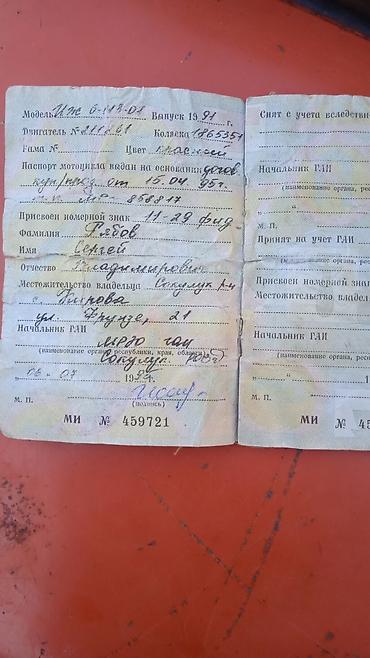 Модель Иж 6-113-01 Выпуск 1991 г.
Двигатель № 211261 Коляска 1865351
Рама № Цвет красный
Паспорт мотоцикла выдан на основании догов
куп/прод от 15.04.95г.
МР- 858817
Присвоен номерной знак 11-29
Фамилия Рябов
Имя Сергей
Отчество Владимирович
Местожительство владельца Сокулук р-н
с.
ул. Фрунзе, 21
Начальник ГАИ
МРЭО ГАИ
(наименование органа, республики, края, области)
Сокулук.
"06" 07 19
М. П.
(подпись)
МИ № 459721
Снят с учета вследстви
Начальник ГАИ
(наименование органа, рес
"
М. П.
Принят на учет ГАИ
Присвоен номерной
Местожительство владел
Начальник ГАИ
(наименование органа, рес
" 1
М. П.
МИ № 45